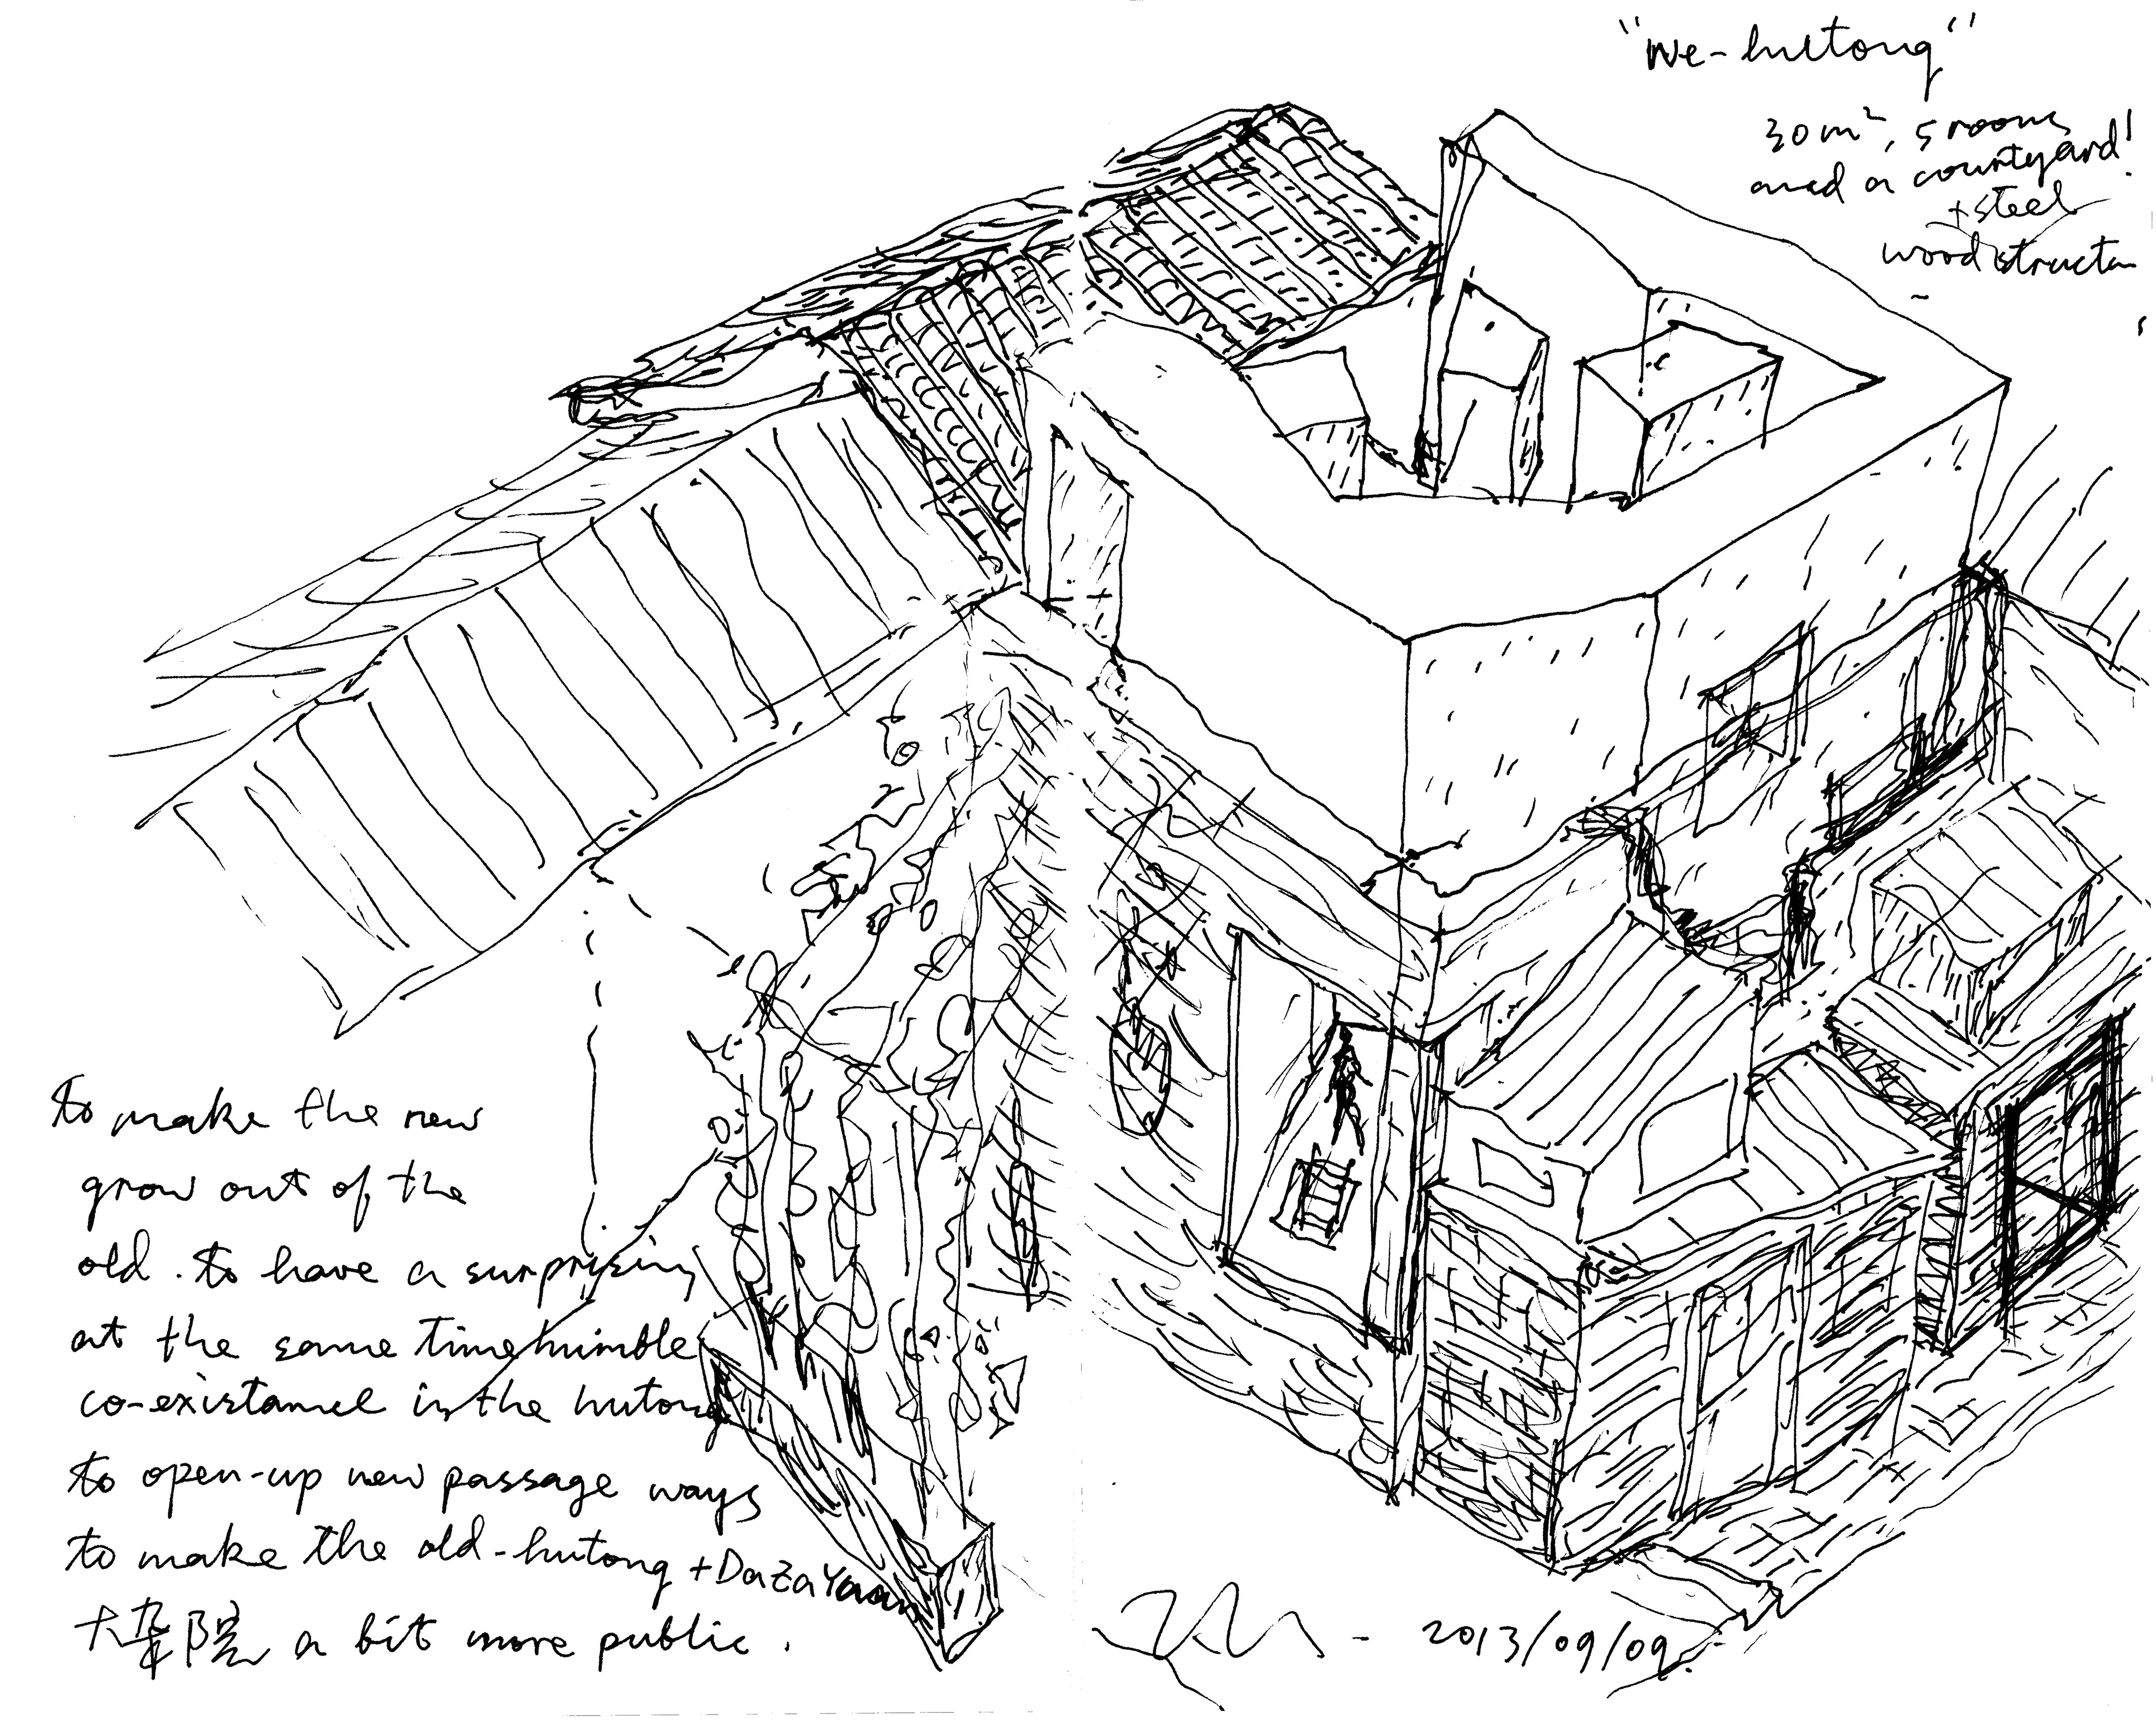 "We-hutong"
30m², 5 rooms
and a courtyard!
+steel
wood structu
to make the new
grow out of the
old. to have a surprising
at the same time humble
co-existance in the hutong
to open-up new passage ways
to make the old-hutong + DaZaYuan
大杂院 a bit more public.
- 2013/09/09.